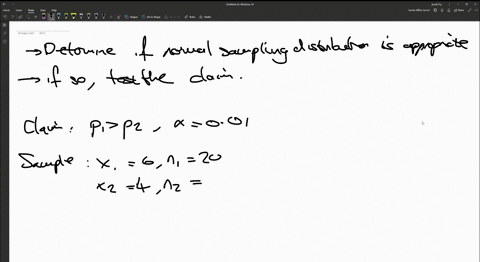 → Determine if normal sampling distribution is appropriate
→ if so, test the claim.
Claim: p₁ > p₂, α = 0.01
Sample: x₁ = 6, n₁ = 20
x₂ = 4, n₂ =